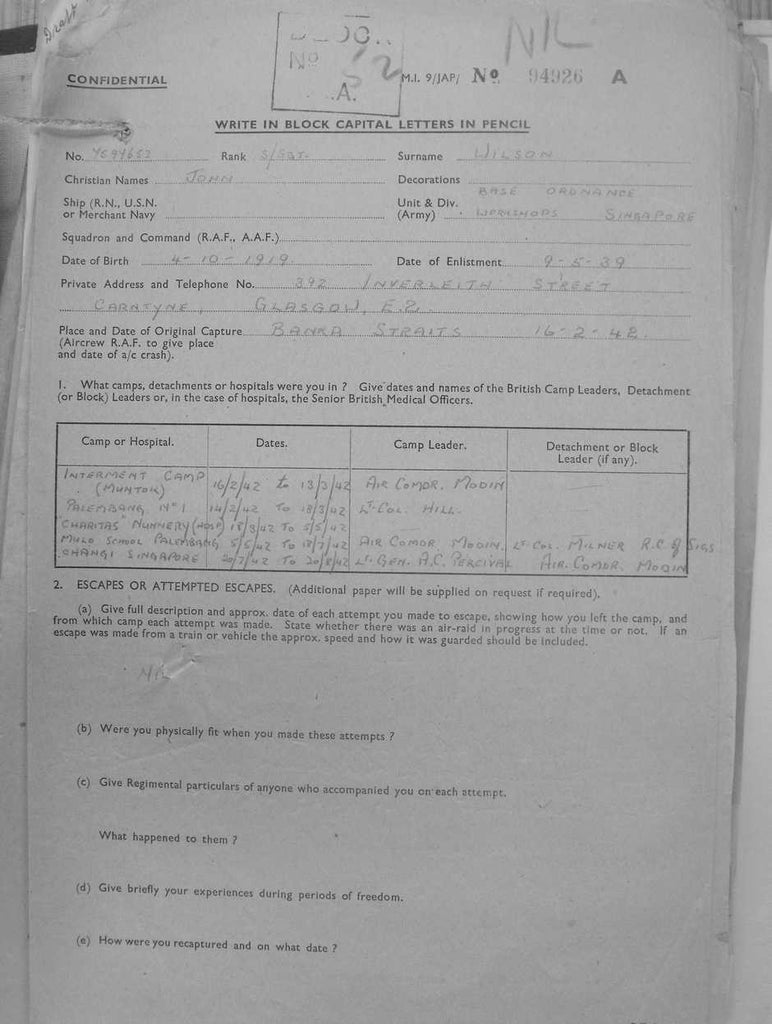 Draft
NIL
No
A.
CONFIDENTIAL
M.I. 9/JAP/ No. 94926 A
WRITE IN BLOCK CAPITAL LETTERS IN PENCIL
No. 7597653 Rank S/SGT. Surname WILSON
Christian Names JOHN Decorations
Ship (R.N., U.S.N. or Merchant Navy Unit & Div. (Army) BASE ORDNANCE WORKSHOPS SINGAPORE
Squadron and Command (R.A.F., A.A.F.)
Date of Birth 4-10-1919 Date of Enlistment 9-5-39
Private Address and Telephone No. 392 INVERLEITH STREET
CARNTYNE, GLASGOW, E.2.
Place and Date of Original Capture BANKA STRAITS 16-2-42.
(Aircrew R.A.F. to give place
and date of a/c crash).
1. What camps, detachments or hospitals were you in ? Give dates and names of the British Camp Leaders, Detachment
(or Block) Leaders or, in the case of hospitals, the Senior British Medical Officers.
Camp or Hospital. Dates. Camp Leader. Detachment or Block Leader (if any).
INTERMENT CAMP (MUNTOK) 16/2/42 to 13/3/42 AIR COMDR. MODIN
PALEMBANG No 1 14/2/42 TO 18/3/42 LT-COL. HILL.
CHARITAS NUNNERY (HOSP) 18/3/42 TO 5/5/42
MULO SCHOOL PALEMBANG 5/5/42 TO 18/7/42 AIR COMDR. MODIN. LT COL. MILNER R.C of SIGS
CHANGI SINGAPORE 20/7/42 TO 20/8/42 LT. GEN. A.C. PERCIVAL AIR. COMDR. MODIN
2. ESCAPES OR ATTEMPTED ESCAPES. (Additional paper will be supplied on request if required).
(a) Give full description and approx. date of each attempt you made to escape, showing how you left the camp, and
from which camp each attempt was made. State whether there was an air-raid in progress at the time or not. If an
escape was made from a train or vehicle the approx. speed and how it was guarded should be included.
NIL
(b) Were you physically fit when you made these attempts ?
(c) Give Regimental particulars of anyone who accompanied you on each attempt.
What happened to them ?
(d) Give briefly your experiences during periods of freedom.
(e) How were you recaptured and on what date ?